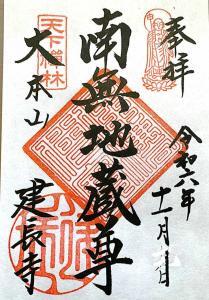 奉拝
令和六年
十一月 日
南無地蔵尊
天下禅林
大本山
建長寺